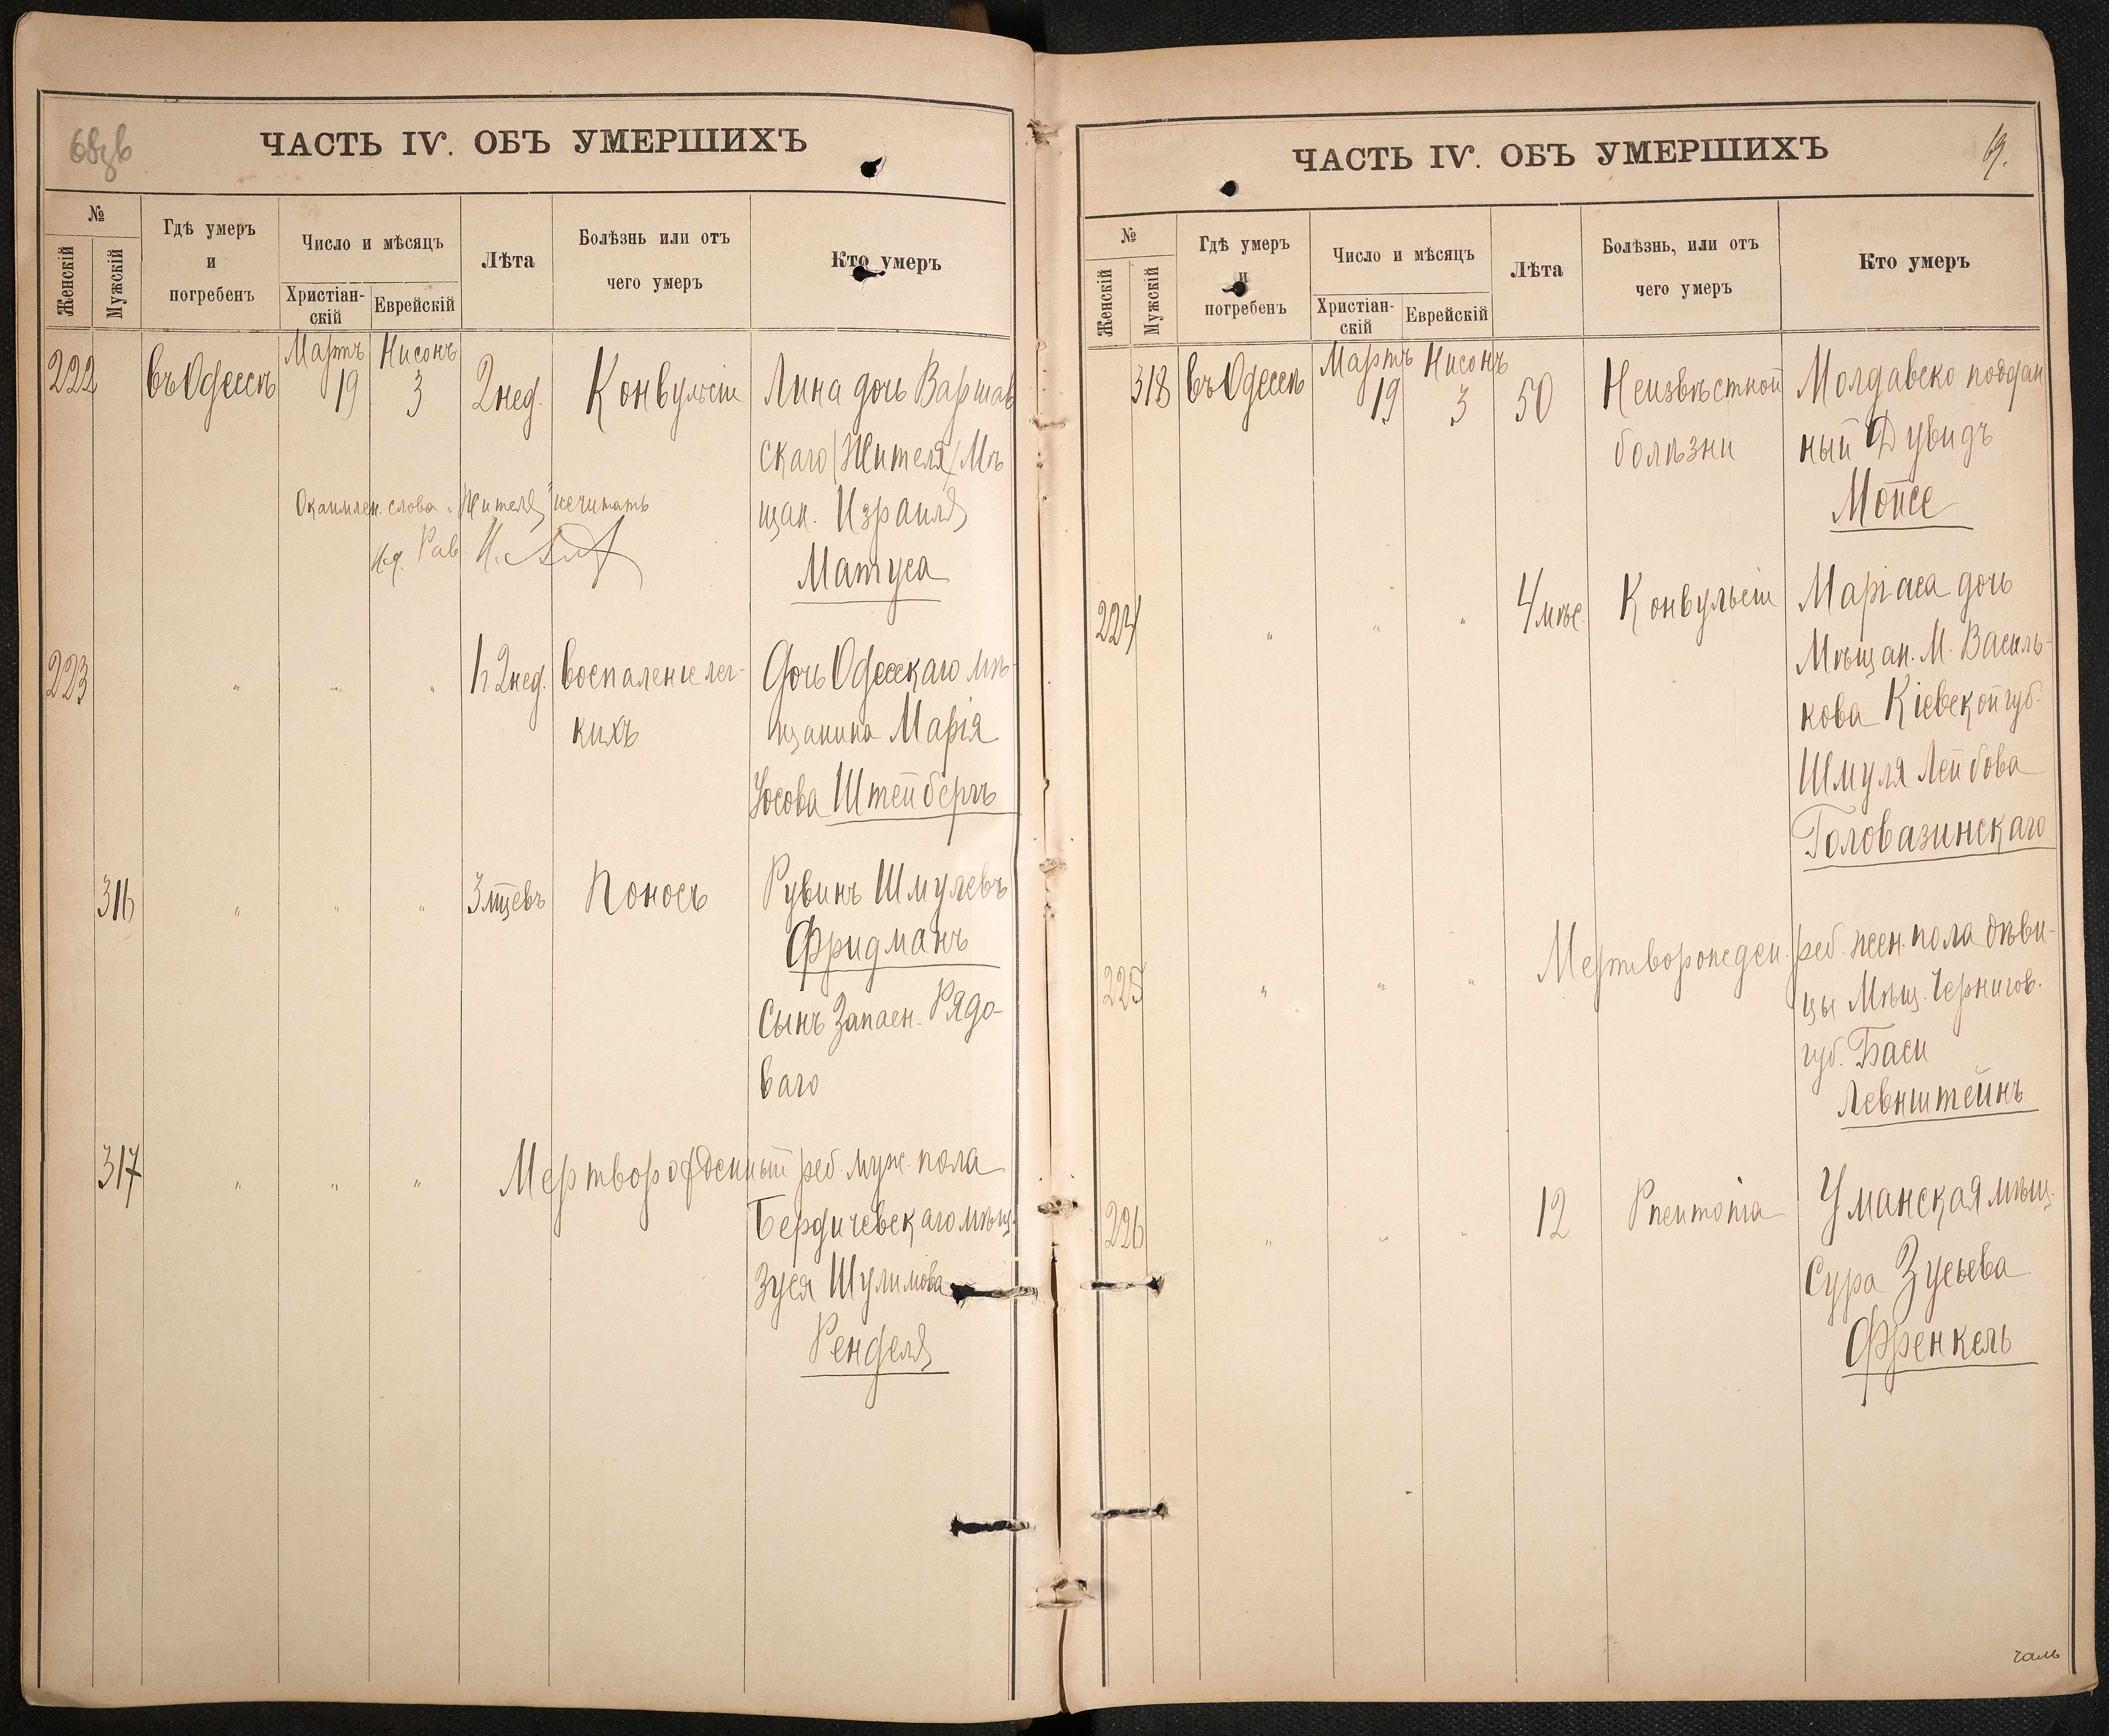 ЧАСТЬ IV. ОБЪ УМЕРШИХЪ
№
Женскій
Мужскій
Гдѣ умеръ
и
погребенъ
Число и мѣсяцъ
Христіан-
скій
Еврейскій
Лѣта
Болѣзнь или отъ
чего умеръ
Кто умеръ
222 въ Одессѣ Мартъ 19 Нисонъ 3 2 нед. Конвульсіи Лина дочь Варшав
скаго (Жителя) Мѣ
щан. Израиля
Матуса
слова „Жителя" нечитать
Рав.
223 " " " 1 1/2 нед. воспаленіе лег- Дочь Одесскаго мѣ-
кихъ щанина Марія
Іосова Штейбергъ
316 " " " 3 мцевъ Поносъ Рувинъ Шмулевъ
Фридманъ
Сынъ Запасн. Рядо-
ваго
317 " " " Мертворожденный реб. муж. пола
Бердичевскаго мѣщ.
Зуся Шулимова
Ренделя
ЧАСТЬ IV. ОБЪ УМЕРШИХЪ
69.
№
Женскій
Мужскій
Гдѣ умеръ
и
погребенъ
Число и мѣсяцъ
Христіан-
скій
Еврейскій
Лѣта
Болѣзнь, или отъ
чего умеръ
Кто умеръ
318 въ Одессѣ Мартъ 19 Нисонъ 3 50 Неизвѣстной Молдавско поддан
болѣзни ный Дувидъ
Мойсе
224 " " " 4 мѣс. Конвульсіи Маріаса дочь
Мѣщан. М. Василь-
кова Кіевской губ.
Шмуля Лейбова
Головазинскаго
225 " " " Мертворожден. реб. жен. пола дѣви-
цы Мѣщ. Чернигов.
губ. Баси
Левнштейнъ
226 " " " 12 Pneumonia Уманская мѣщ.
Сура Зусьева
Френкель